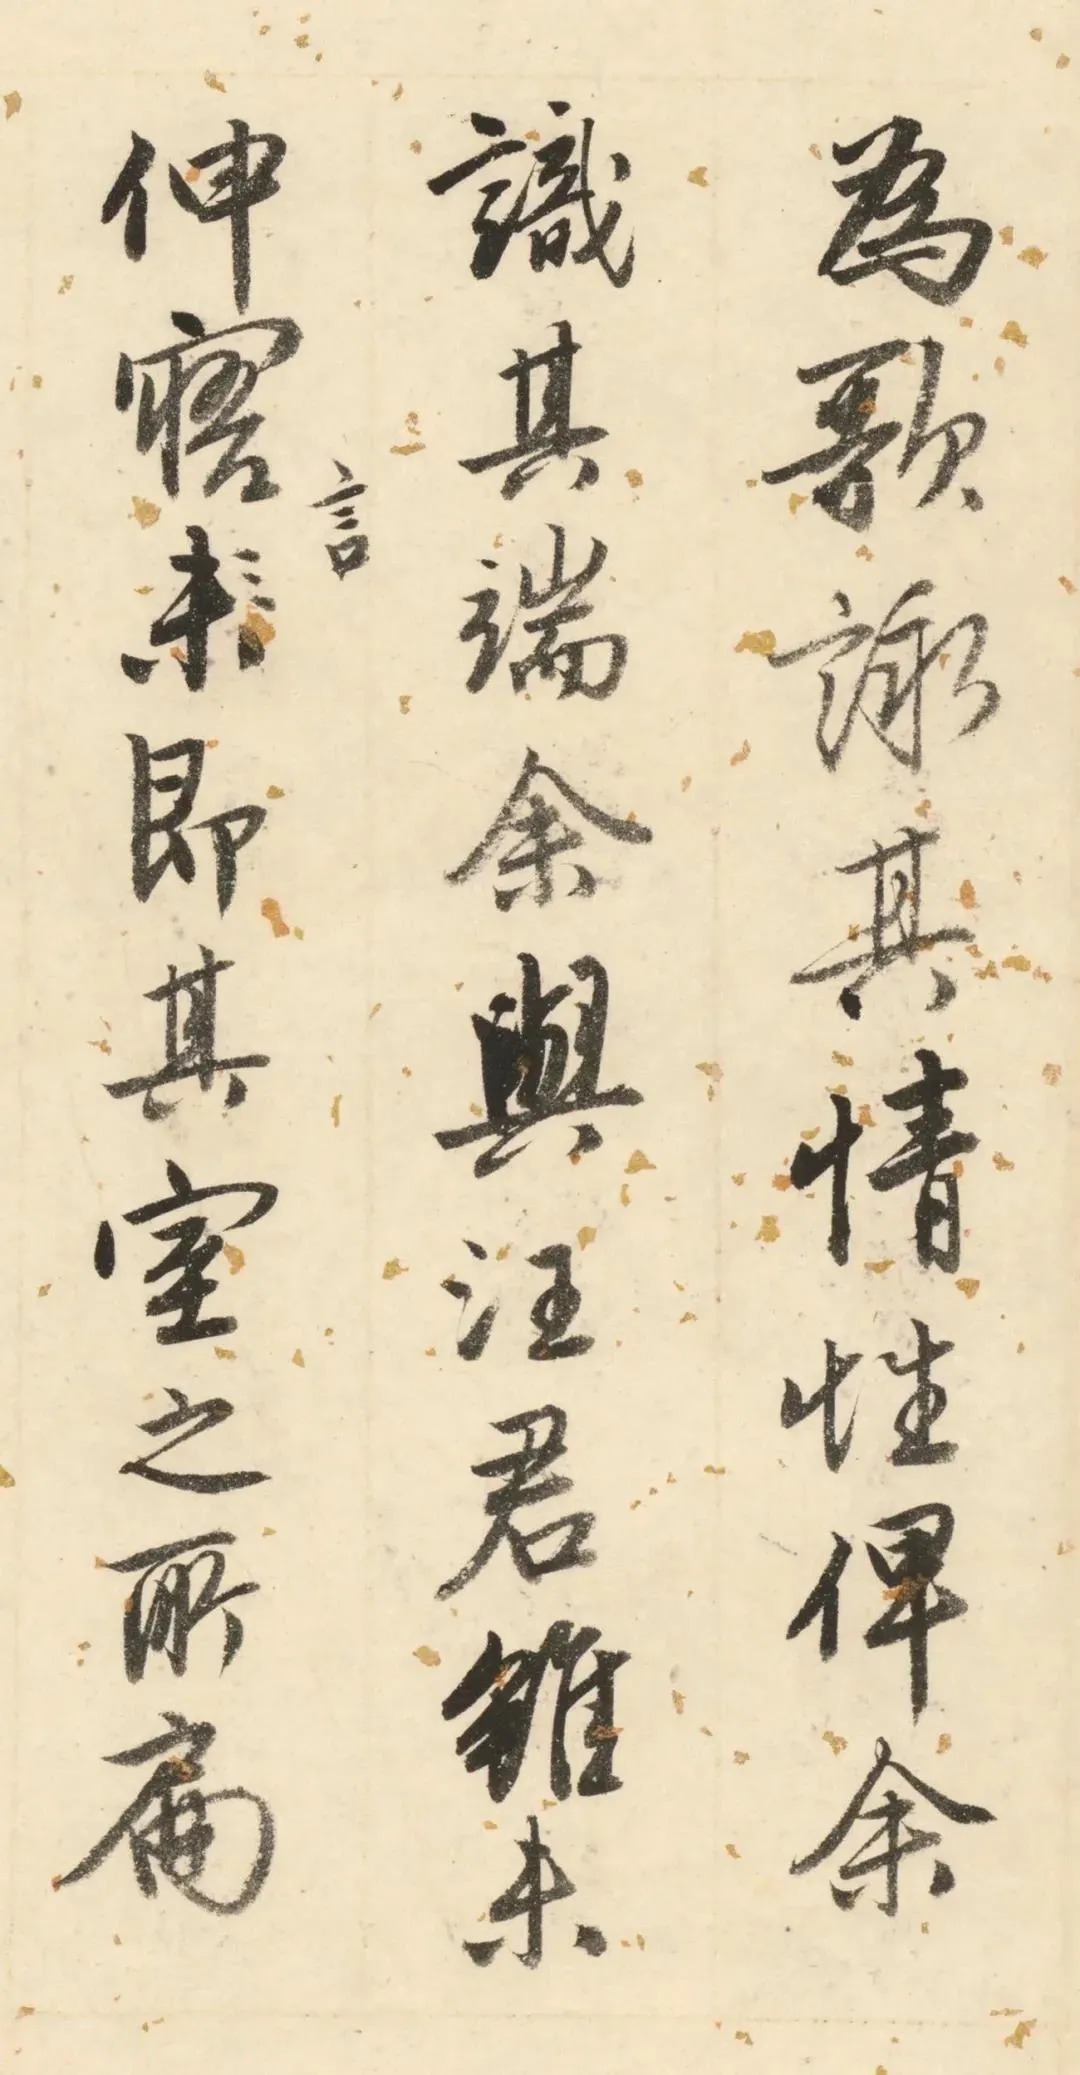 為歌詠其情性俾余
識其端余與汪君雖未
言
伸寤未即其室之所扁